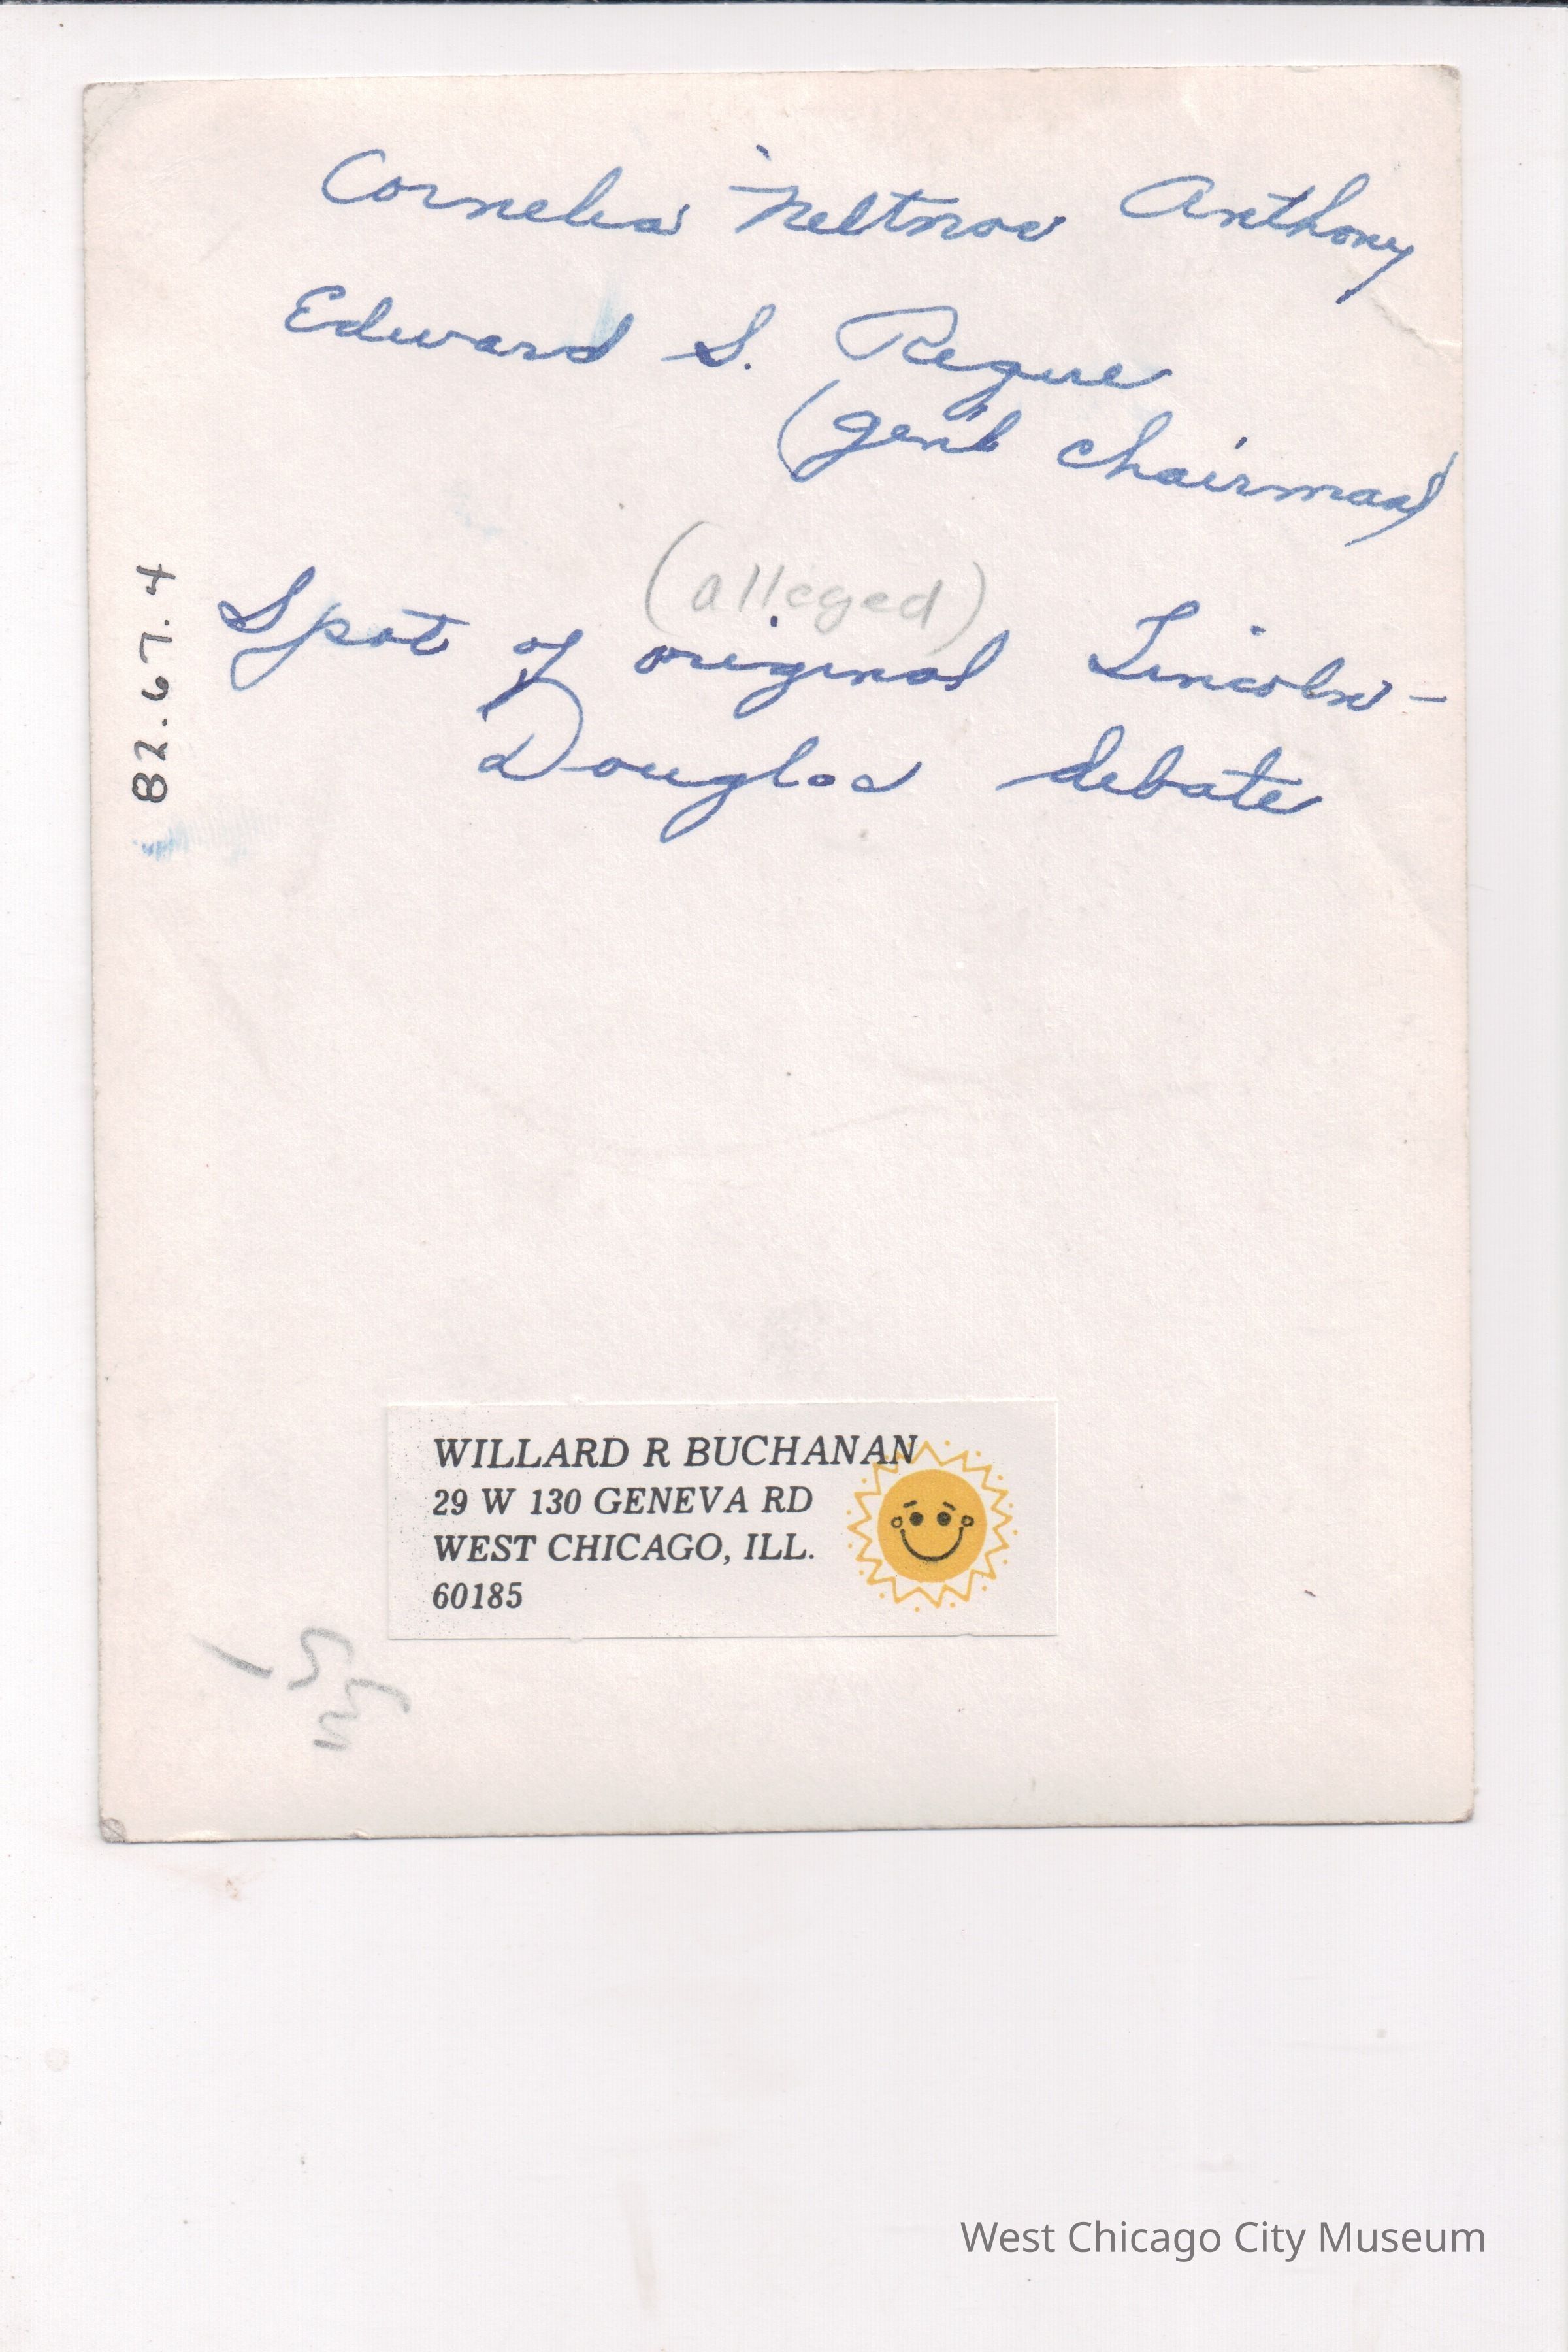 Cornelia Neltnor Anthony
Edward S.
(gen'l chairman)
(alleged)
Spot of original Lincoln-
Douglas debate
82.67.4
WILLARD R BUCHANAN
29 W 130 GENEVA RD
WEST CHICAGO, ILL.
60185
West Chicago City Museum